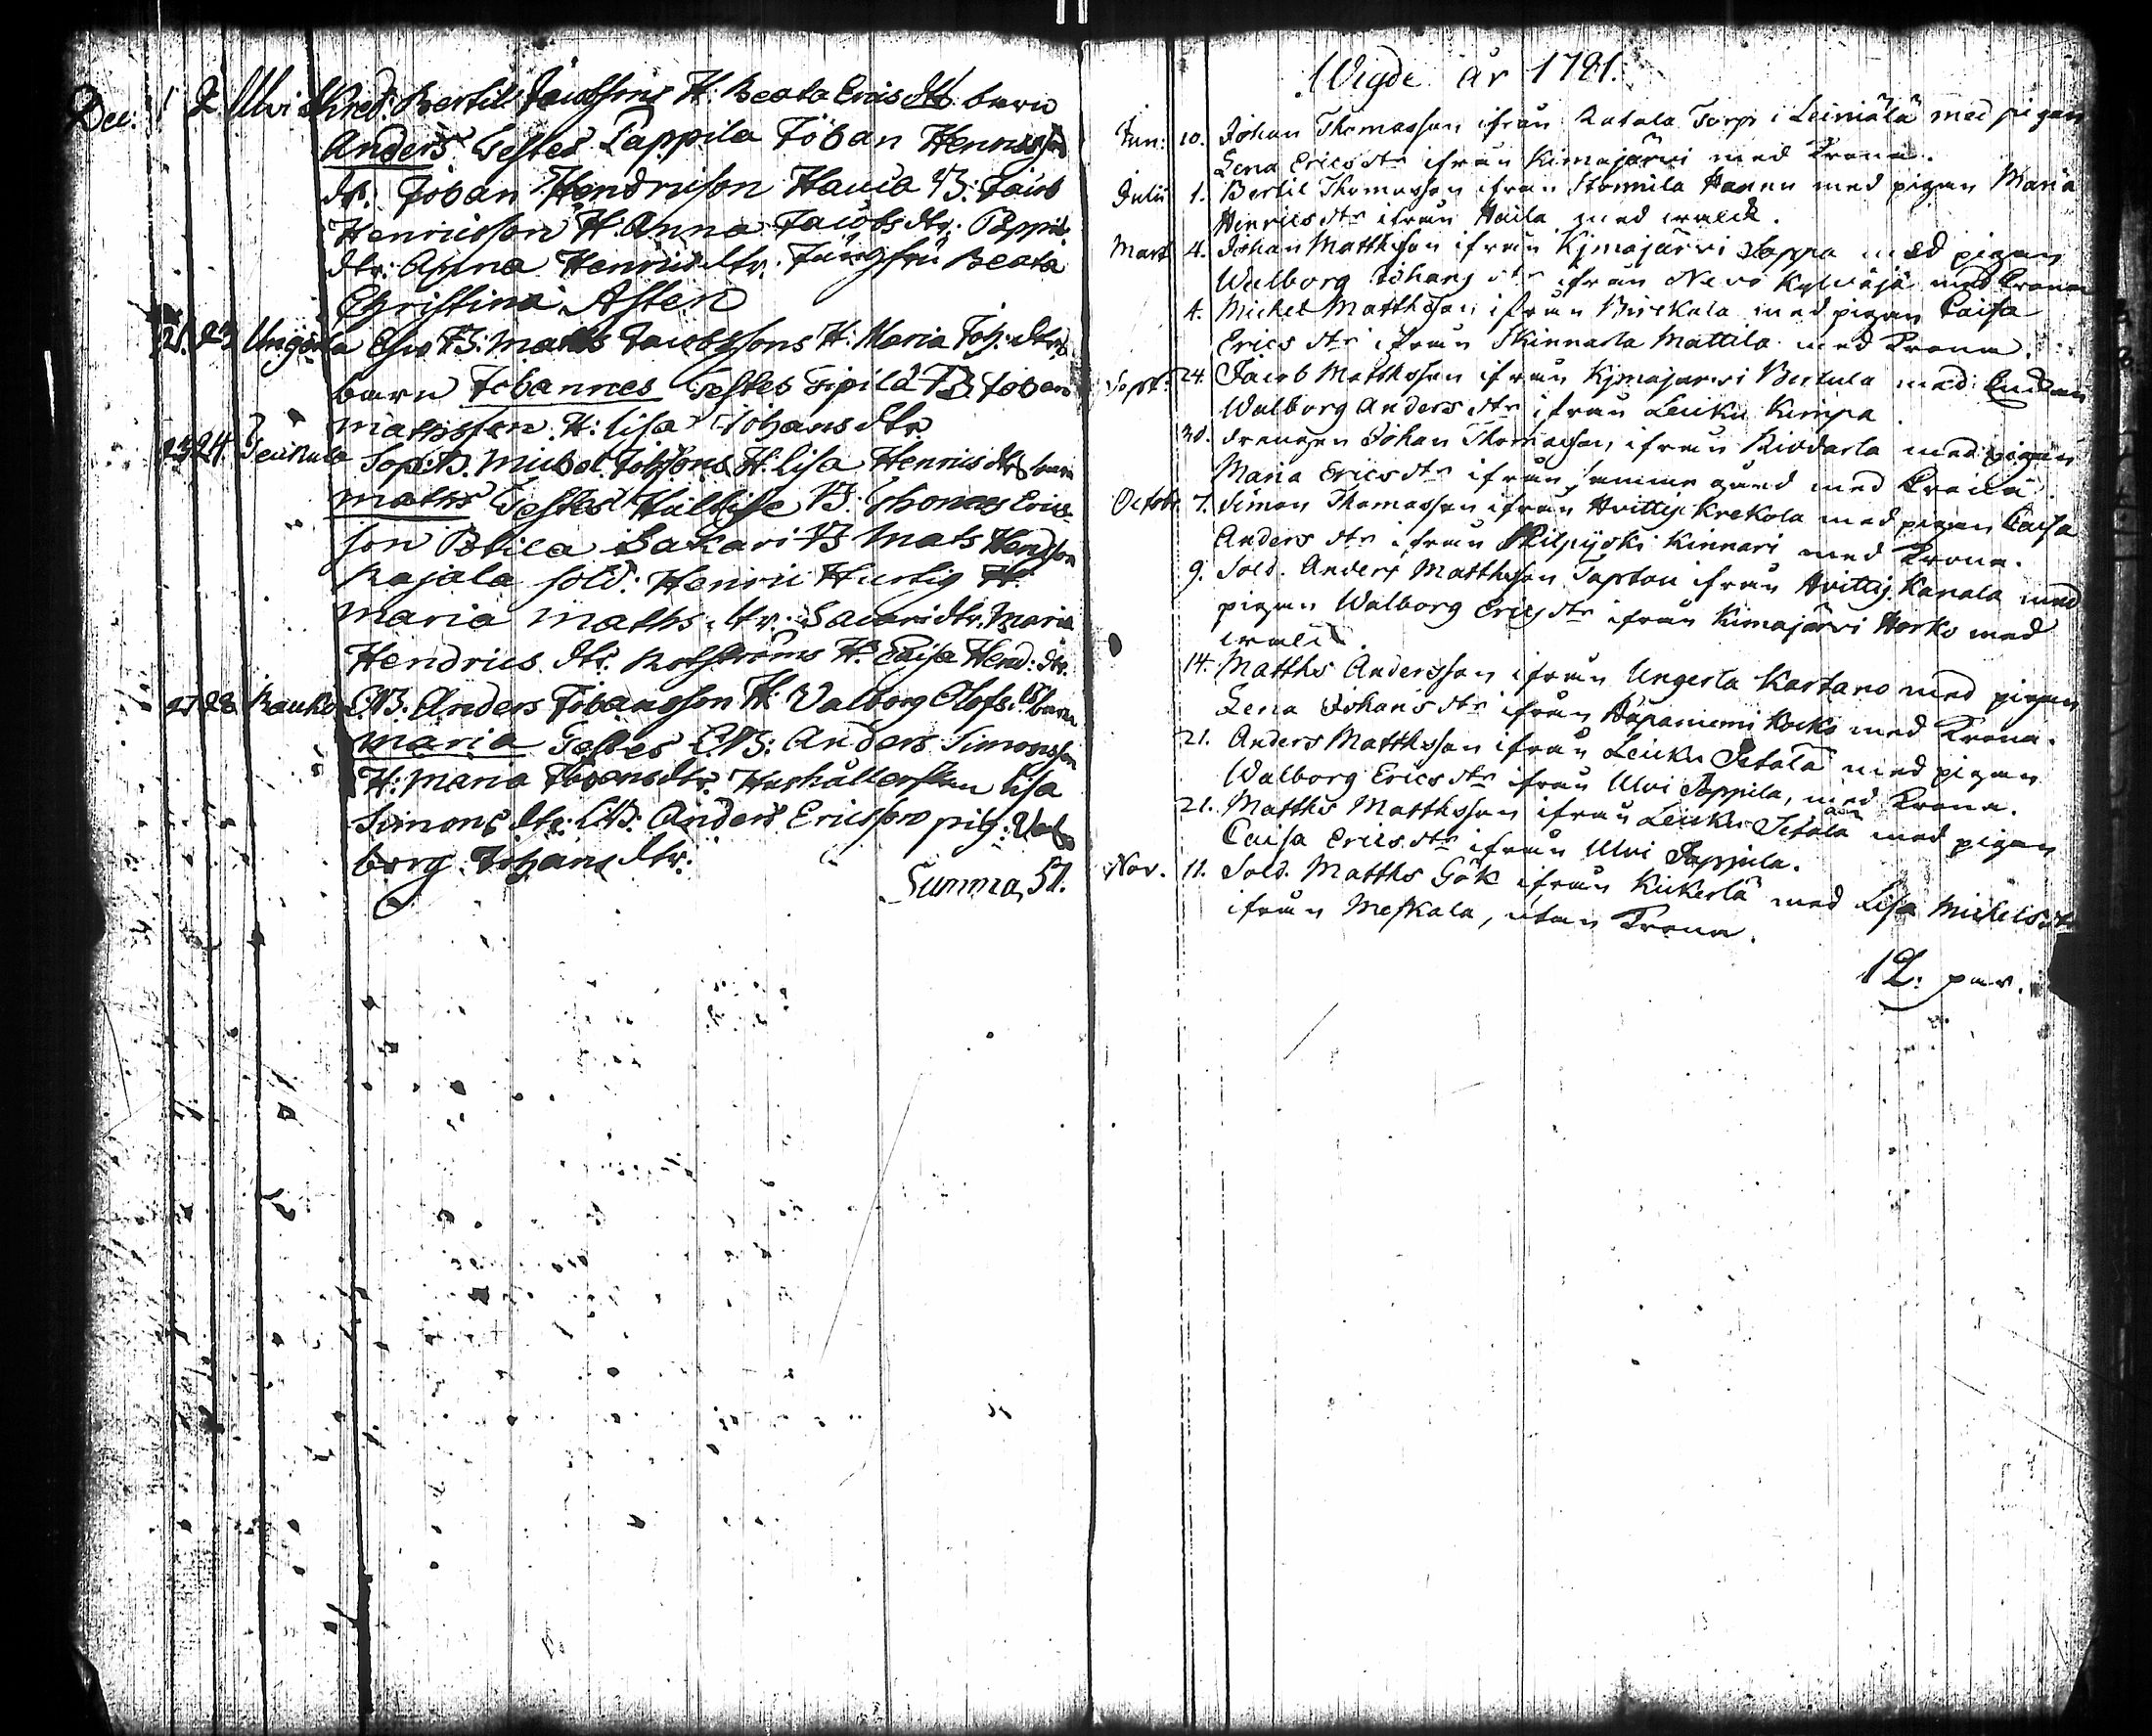 Dec. 1 2 Ulvi Kred: Bertils Jacobssons H: Beata Erics dtr barn
Anders Testes Pappila Johan Henricsson
dr. Johan Hendricson Hauia B: Jacob
Henricsson H. Anna Jacobs dtr. Pappil
dtr: Anna Henrics dtr. Jungfru Beata
Christina Asten
21. 23 Ungerla B: Matts Jacobssons H: Maria Joh: dtrs
barn Johannes Testes Sipilä B. Johan
Mathsson H: Lisa Johans dtr
23 24 B. Michel Johssons H. Lisa Henrics dtrs barn
Maths Testes B: Thomas Erics
son Sakari B Mats Hendson
Rajala sold: Henric Hurtig H:
Maria Maths dtr. dtr. Maria
Hendrics dtr. H. Caisa Hend: dtr.
27 28 Rauko B. Anders Johansson H: Valborg Olofs ds barn
Maria Testes B: Anders Simonsson
H: Maria Johans dtr. Hushållerskan Lisa
Simons dtr: B: Anders Ericsson pig: Val
borg Johans dtr.
Summa 51.
Wigde år 1781.
Jun: 10. Johan Thomasson ifrån Ratala Torp i Leiniälä med pigan
Lena Erics dtr ifrån Kimajärvi med Krona.
Julii 1. Bertil Thomasson ifrån Stormila Hannu med pigan Maria
Henrics dtr ifrån Haila med wulck.
Mart 4. Johan Matthsson ifrån Kjmajärvi Sappa med pigan
Walborg Johans dtr ifrån Kylväjä med Krona
4. Michel Matthsson ifrån med pigan Caisa
Erics dtr ifrån Skinnarla Mattila med Krona.
Sept: 24. Jacob Matthsson ifrån Kjmajarvi Bertula med Enkan
Walborg Anders dtr ifrån Leiku Kimpa
30. drengen Johan Thomasson, ifrån med pigan
Maria Erics dtr ifrån samma gård med Krona.
Octobr 7. Simon Thomasson ifrån Hvittis Krekola med pigan Caisa
Anders dtr ifrån Kilpijoki Kinnari med Krona.
9. Sold. Anders Matthsson Tapton ifrån Hvittis Kanala med
pigan Walborg Erics dtr ifrån Kimajärvi Horko med
wulck.
14. Matths Andersson ifrån Ungerla Kartano med pigan
Lena Johans dtr ifrån Haapaniemi Kocko med Krona.
21. Anders Matthsson ifrån Leiku Setälä med pigan
Walborg Erics dtr ifrån Ulvi Pappila, med Krona.
21. Matths Matthsson ifrån Leiku Setälä med pigan
Caisa Erics dtr ifrån Ulvi Pappila.
Nov. 11. Sold. Matths Gök ifrån Kickerlä med Lisa Michels dtr
ifrån Meskala, utan Krona.
12: par.